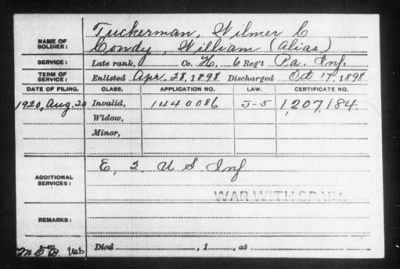 NAME OF SOLDIER: Tuckerman, Wilmer C
Condy, William (Alias)
SERVICE: Late rank, Co. H, 6 Reg't Pa. Inf.
TERM OF SERVICE: Enlisted Apr. 28, 1898 Discharged Oct 17, 1898
DATE OF FILING. CLASS. APPLICATION NO. LAW. CERTIFICATE NO.
1920, Aug. 20 Invalid, 1440086 J-5 1,207,184
Widow,
Minor,
ADDITIONAL SERVICES: E, 2, U S Inf
WAR WITH SPAIN
REMARKS:
Died , 1 , at